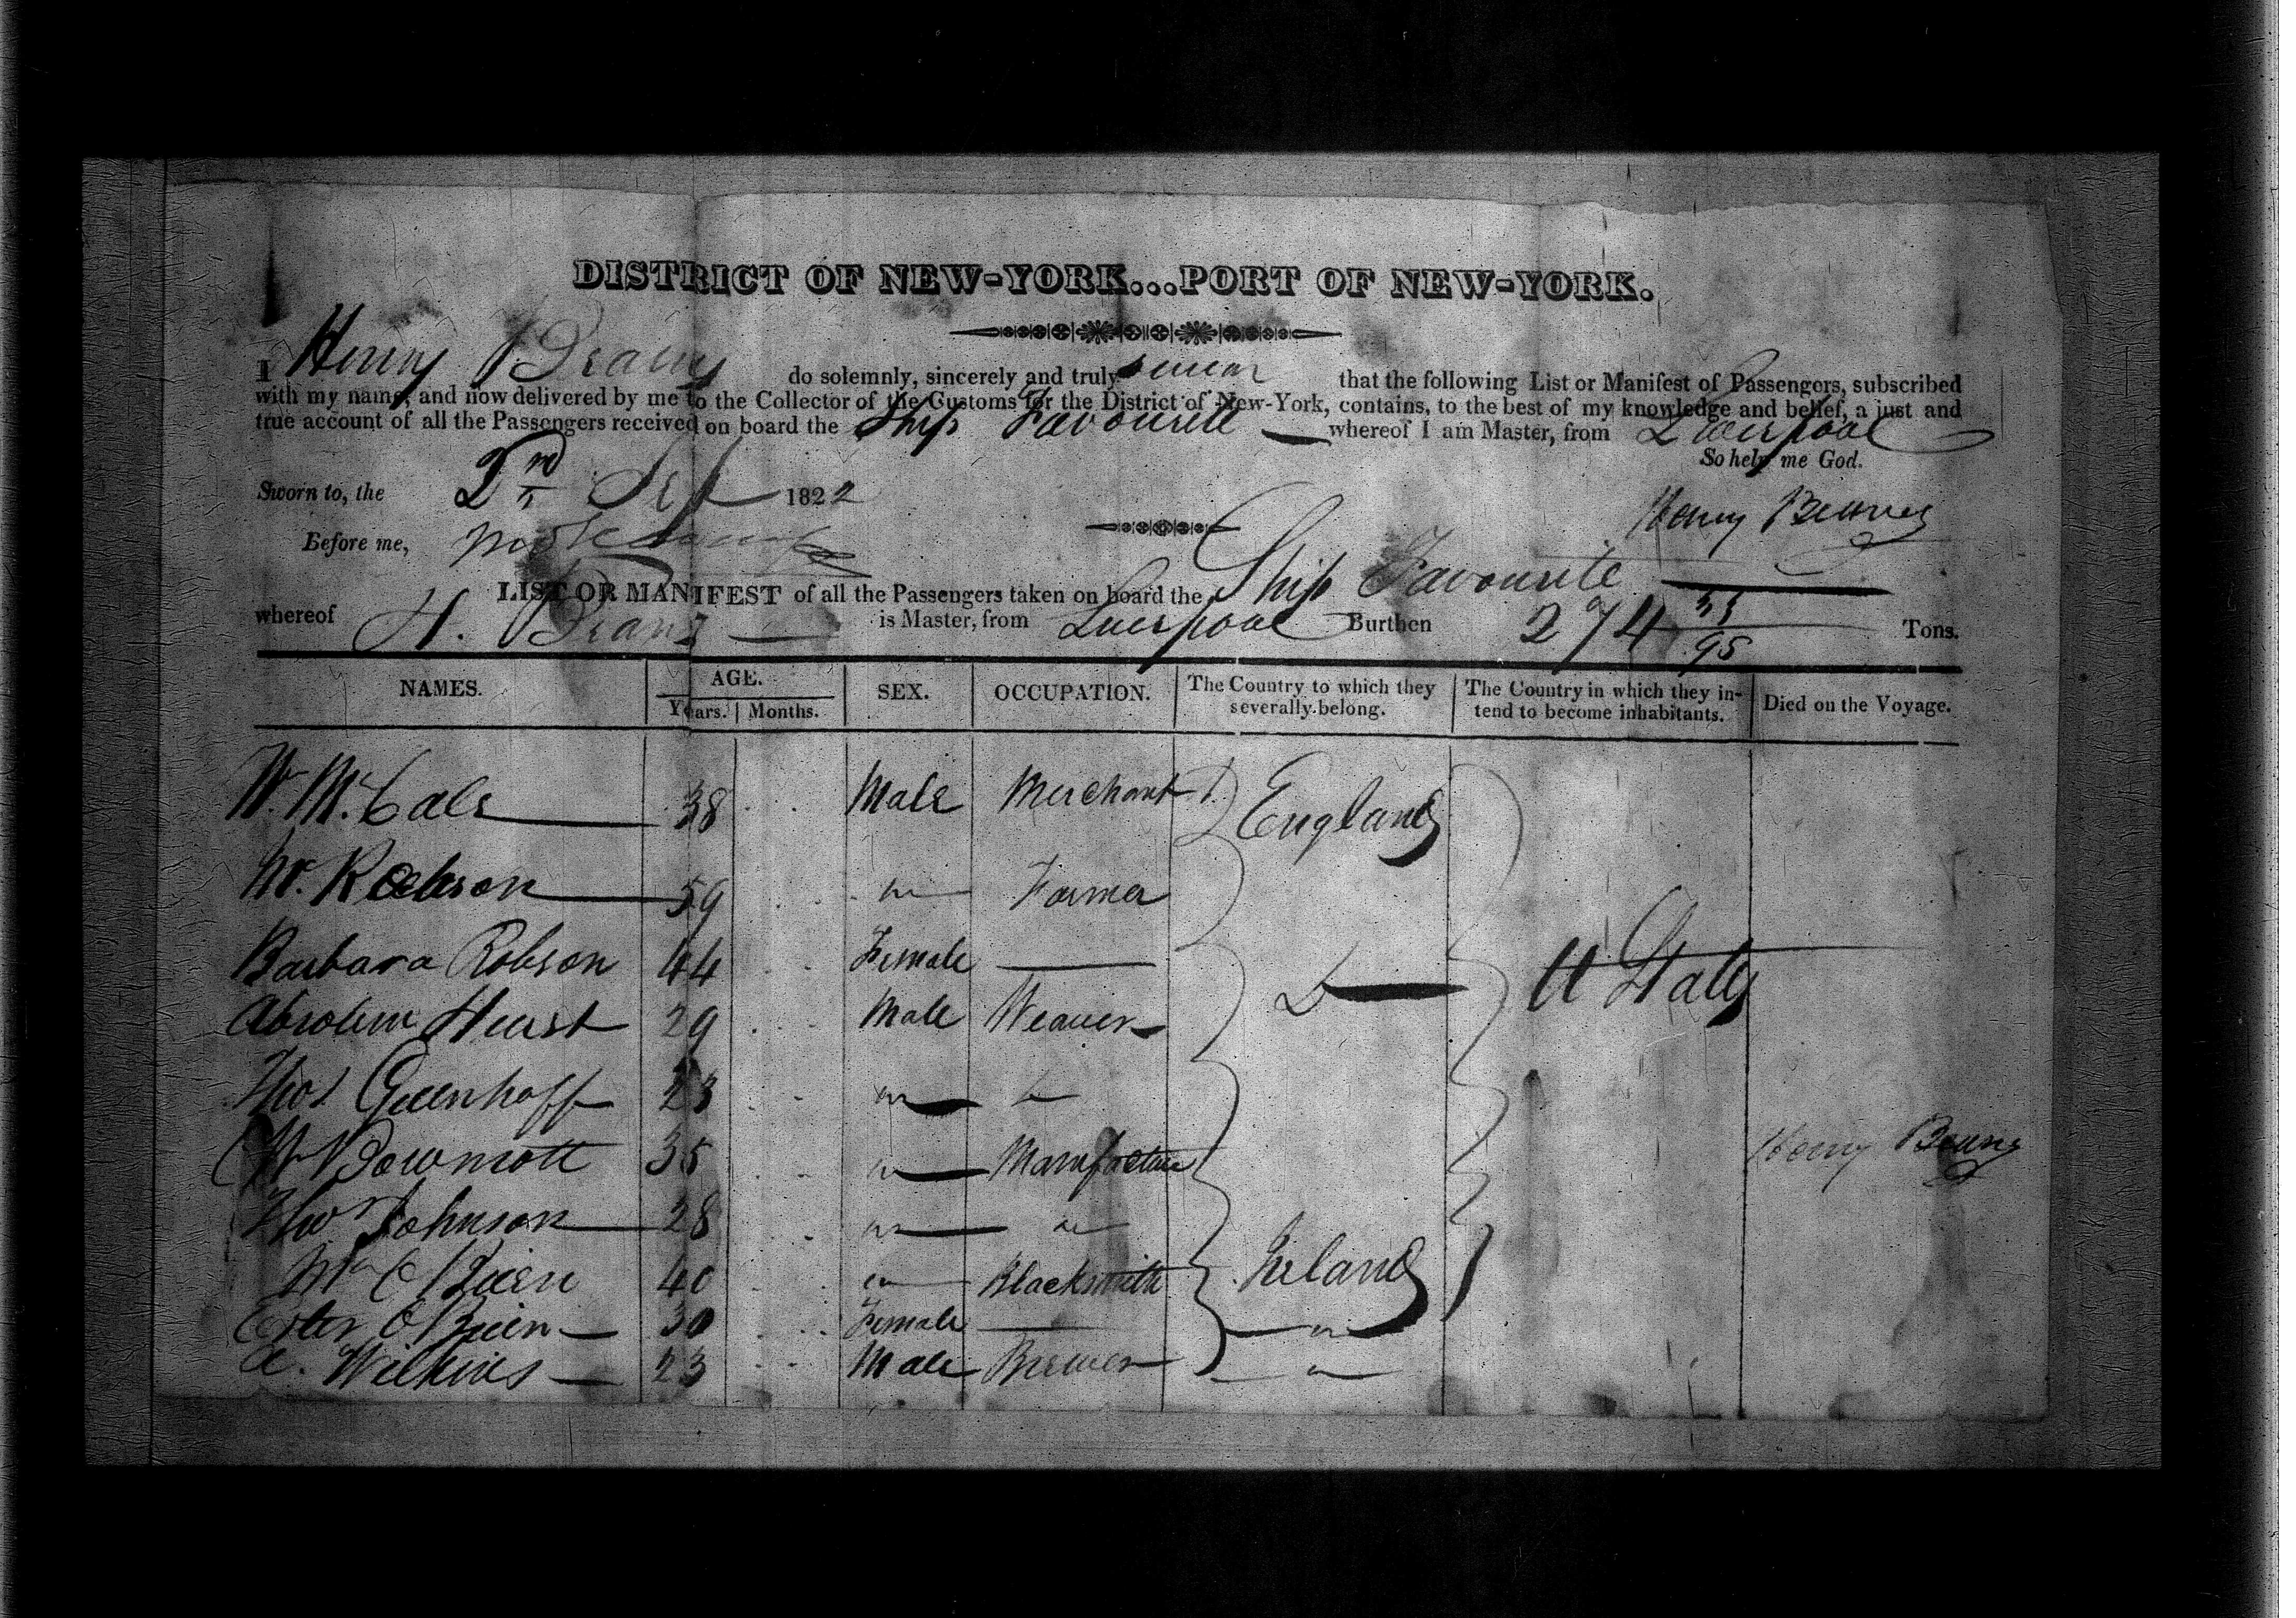 DISTRICT OF NEW-YORK...PORT OF NEW-YORK.
I Henry do solemnly, sincerely and truly swear that the following List or Manifest of Passengers, subscribed
with my name, and now delivered by me to the Collector of the Customs for the District of New-York, contains, to the best of my knowledge and belief, a just and
true account of all the Passengers received on board the Ship Favourite whereof I am Master, from Liverpool
So help me God.
Sworn to, the 2nd Sep 1822
Henry
Before me,
LIST OR MANIFEST of all the Passengers taken on board the Ship Favourite
whereof H. is Master, from Liverpool Burthen 274 33/95 Tons.
NAMES. AGE. SEX. OCCUPATION. The Country to which they severally belong. The Country in which they intend to become inhabitants. Died on the Voyage.
Years. Months.
Wm McCale 38 Male Merchant England
Wm Robson 59 " Farmer
Barbara Robson 44 Female
Absolem Hurst 29 Male Weaver D U States
Thos Greenhoff 23 " "
Wm Dowmott 35 " Manufacture Henry
Thos Johnson 28 " "
Wm O Brien 40 " Blacksmith Ireland
Ester O Brien 30 Female "
A. Wilkins 23 Male Brewer "